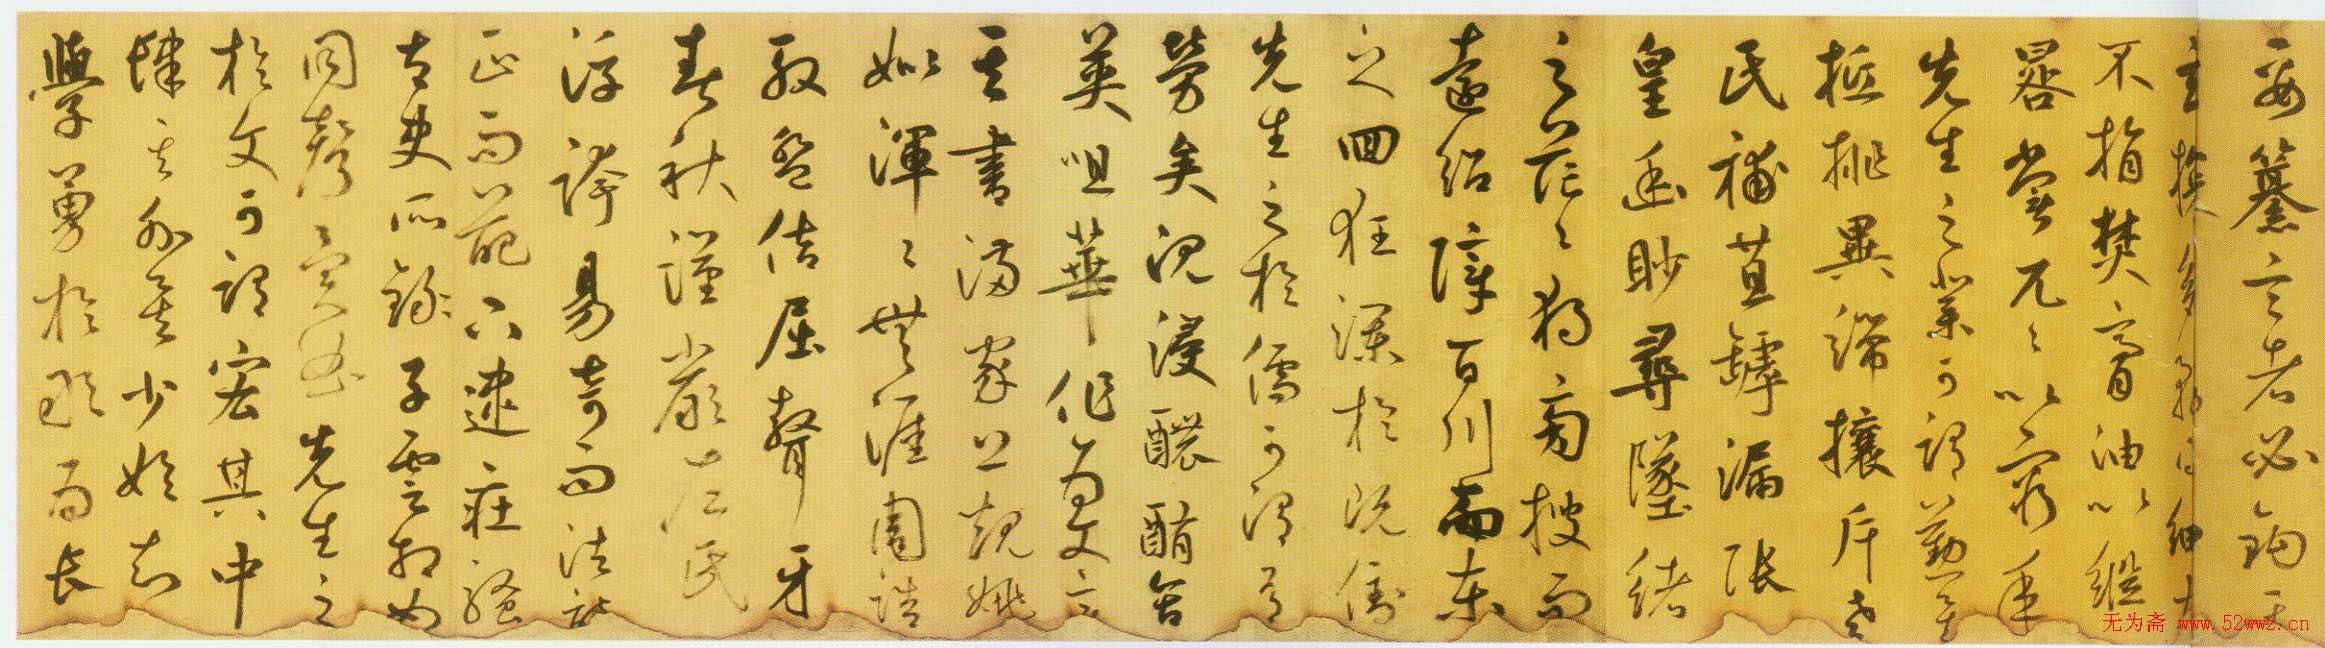 要纂言者必鉤其
玄 多務得細大
不捐焚膏油以繼
晷嘗兀々以窮年
先生之業可謂勤矣
抵排異端攘斥老
氏補苴罅漏張
皇幽眇尋墜緒
之茫々獨旁搜而
遠紹障百川而東
之回狂瀾於既倒
先生之於儒可謂有
勞矣沉浸醲 含
英咀華作為文章
其書滿家上規姚
姒渾々無涯周誥
殷盤佶屈聱牙
春秋謹嚴左氏
浮誇易奇而法詩
正而葩下逮莊騷
太史所錄子雲相如
同 異曲先生之
於文可謂宏其中
肆其外矣少始知
學勇於敢為長
无为斋 www.52wwz.cn